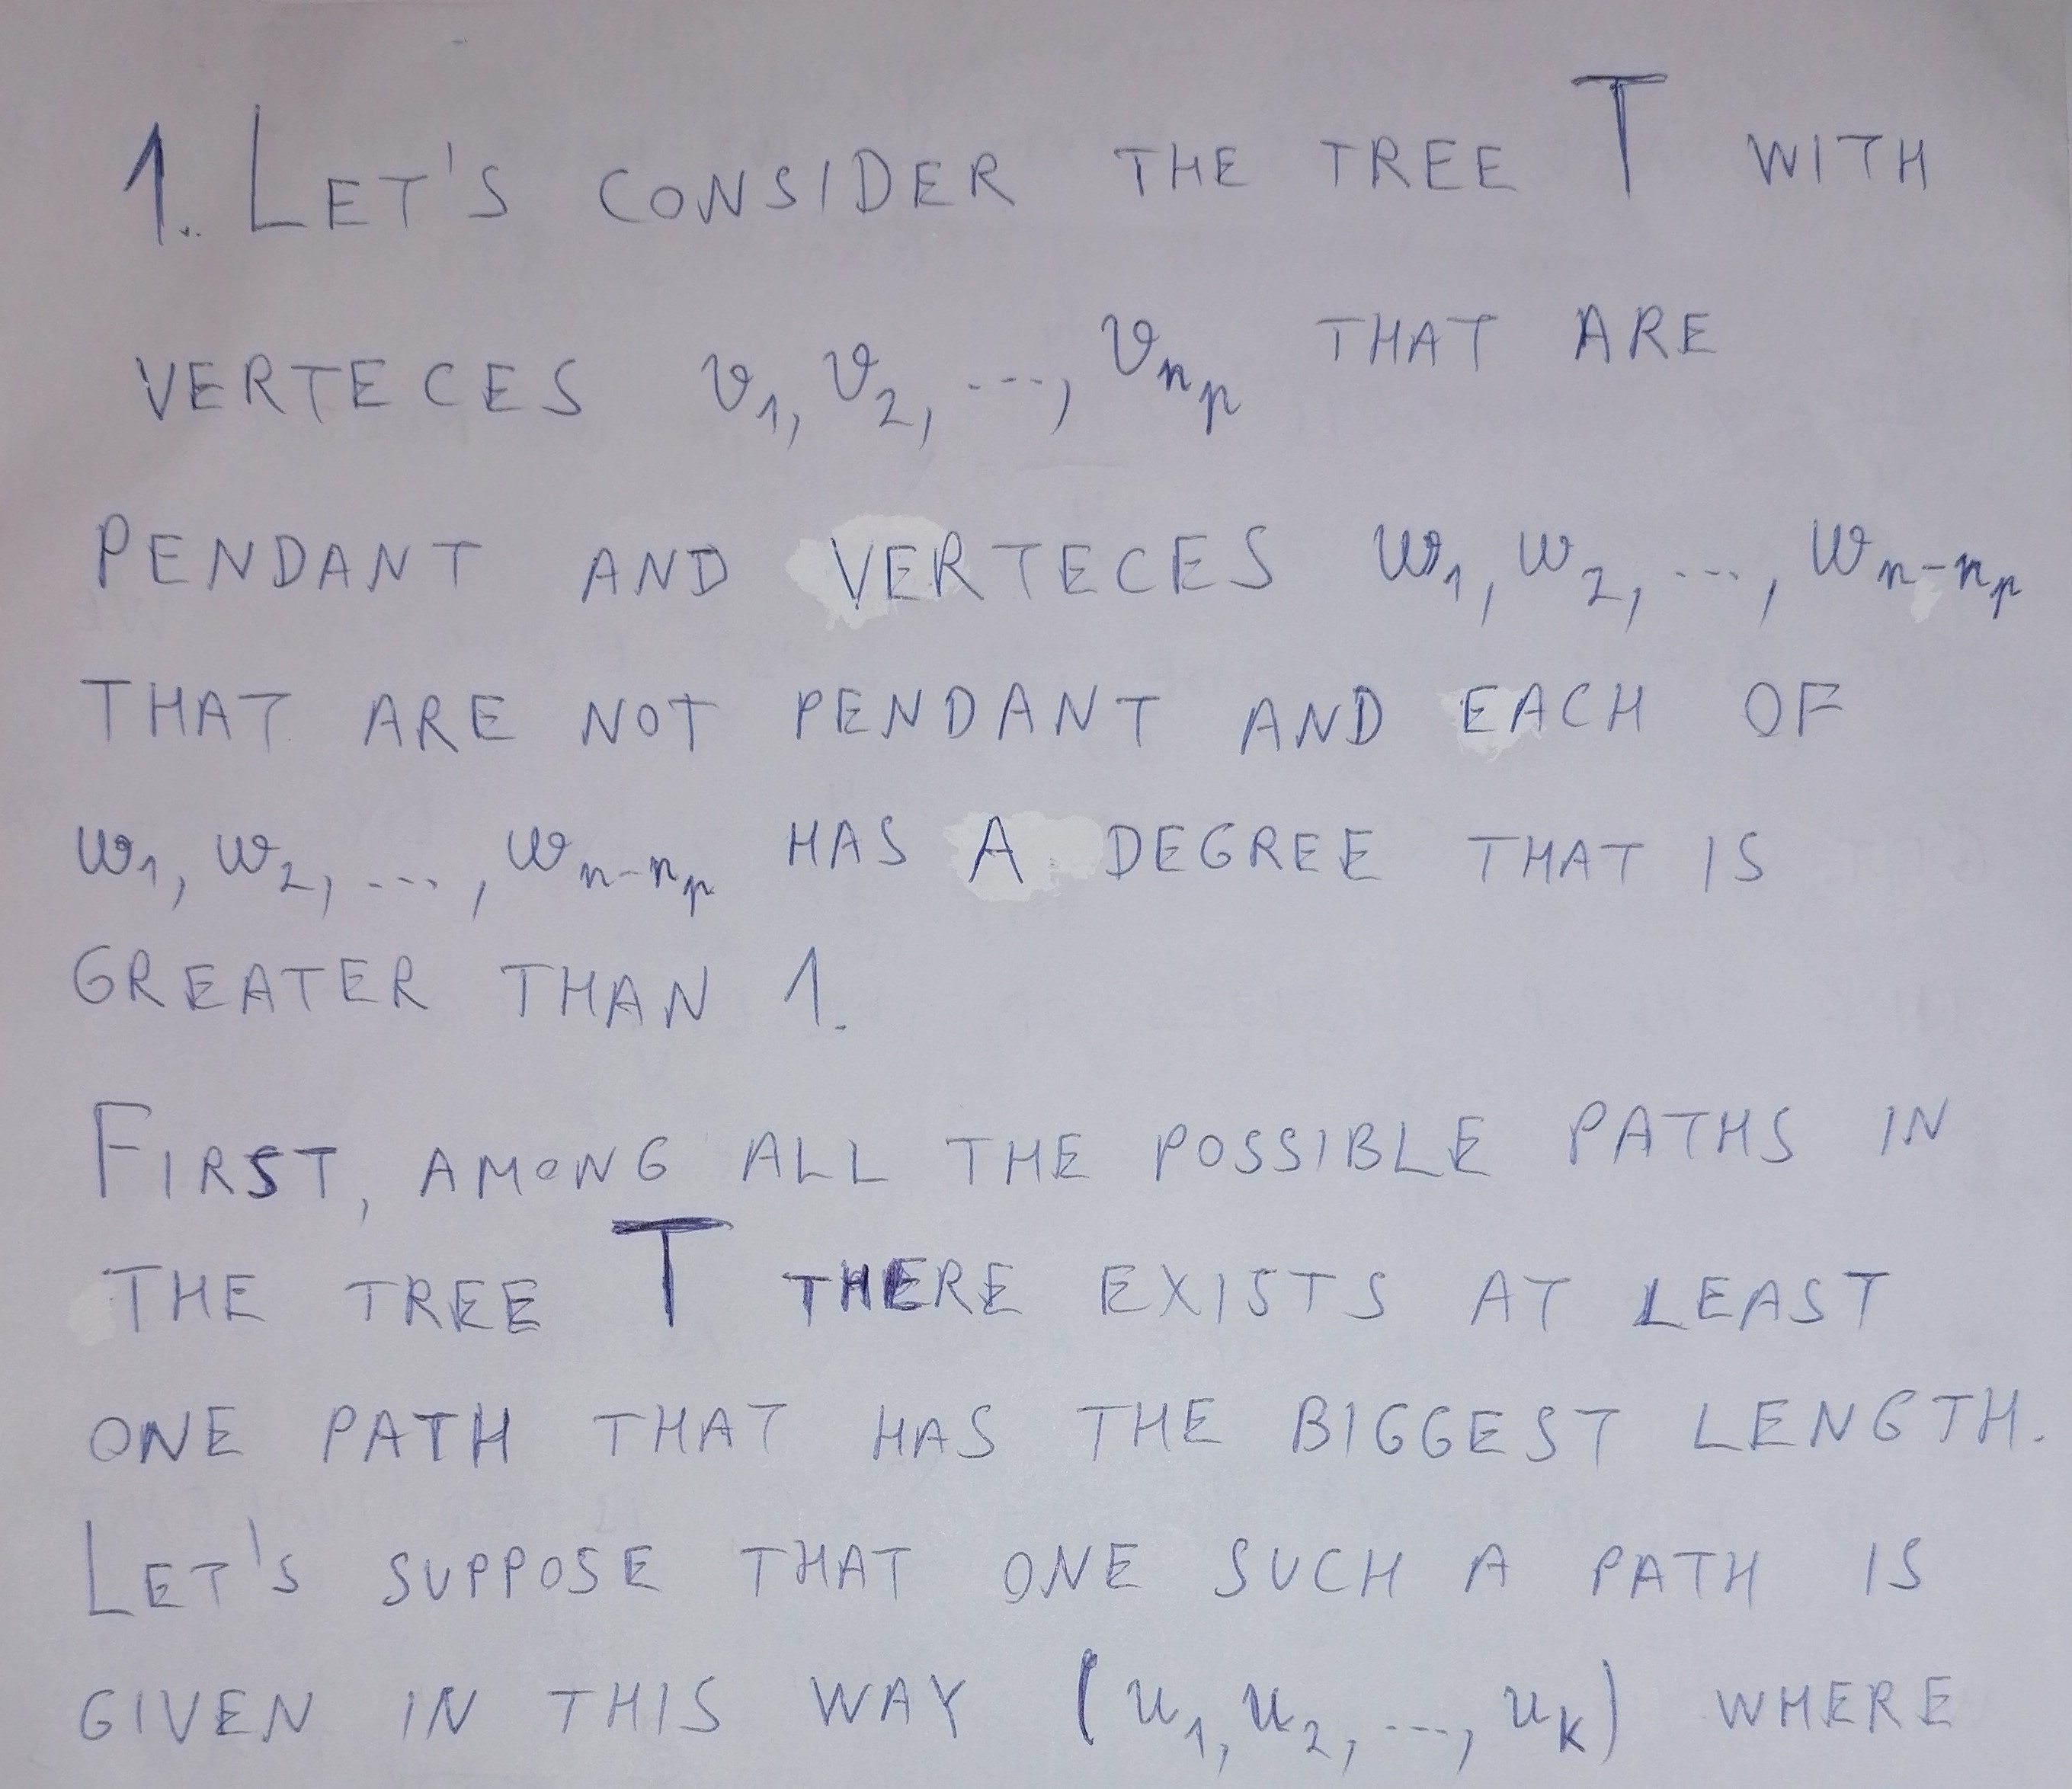 1. LET'S CONSIDER THE TREE T WITH
VERTECES v₁, v₂, ..., vₙₚ THAT ARE
PENDANT AND VERTECES w₁, w₂, ..., wₙ₋ₙₚ
THAT ARE NOT PENDANT AND EACH OF
w₁, w₂, ..., wₙ₋ₙₚ HAS A DEGREE THAT IS
GREATER THAN 1.
FIRST, AMONG ALL THE POSSIBLE PATHS IN
THE TREE T THERE EXISTS AT LEAST
ONE PATH THAT HAS THE BIGGEST LENGTH.
LET'S SUPPOSE THAT ONE SUCH A PATH IS
GIVEN IN THIS WAY (u₁, u₂, ..., uₖ) WHERE